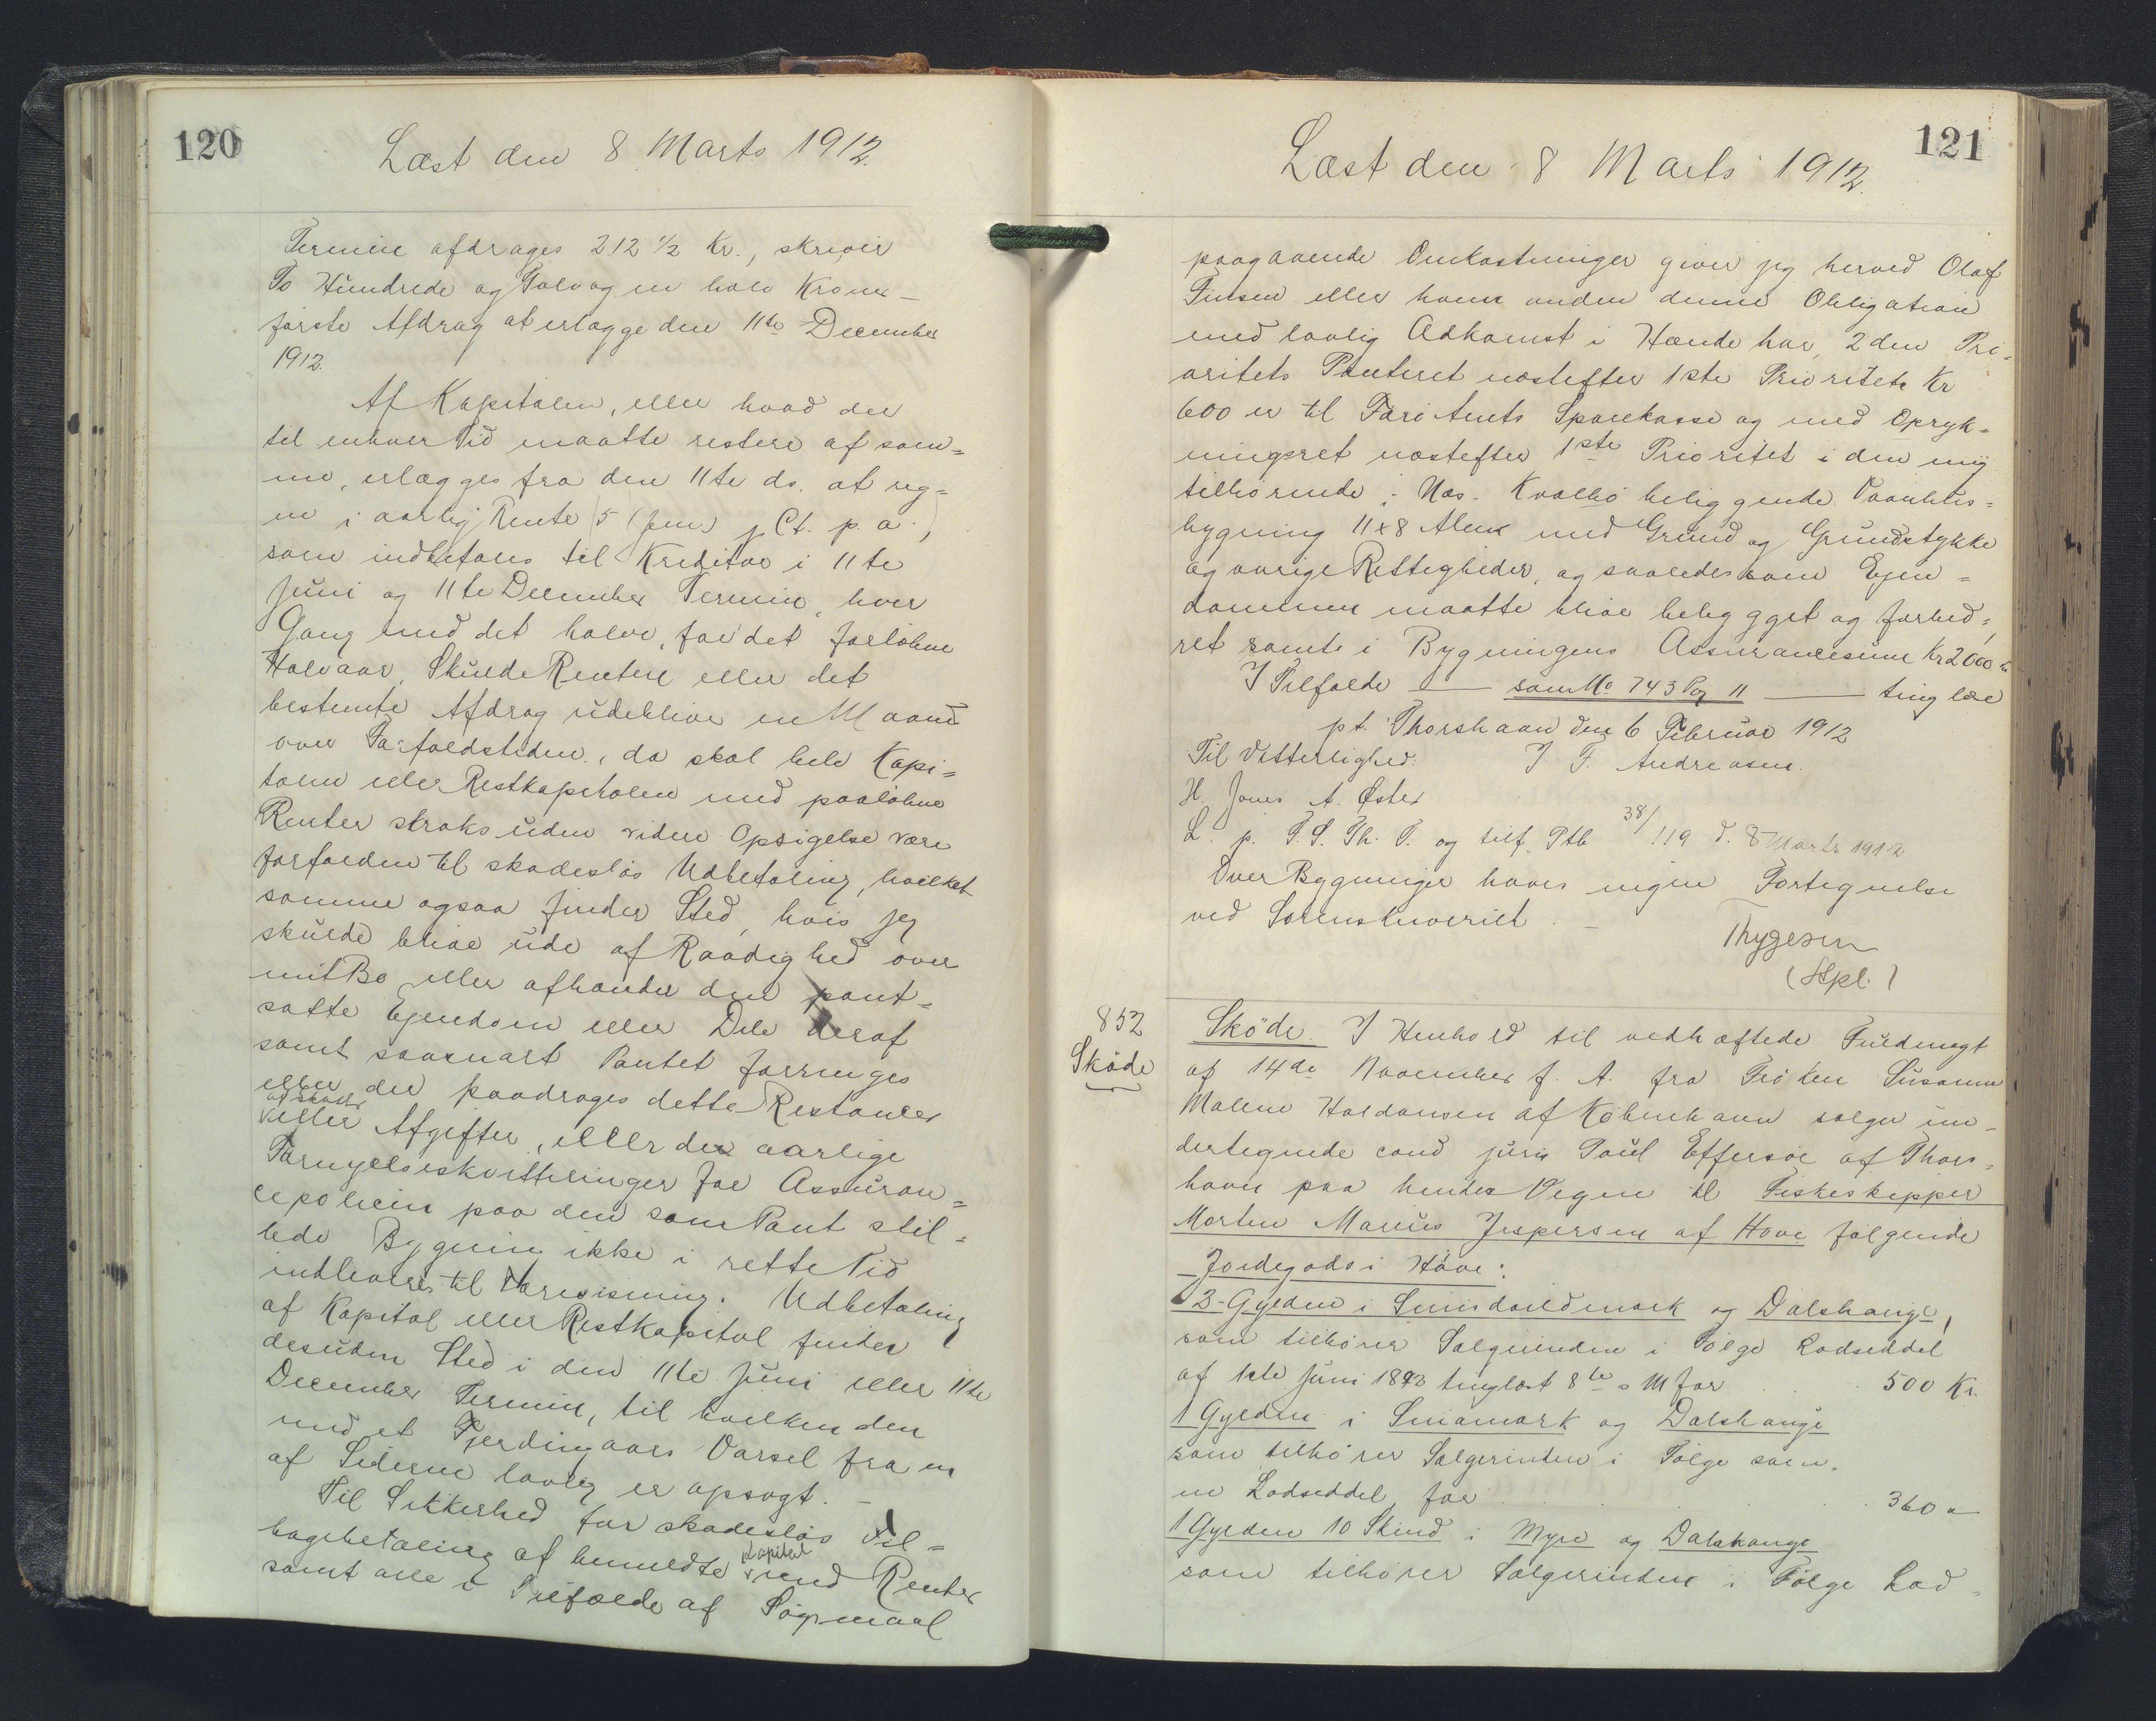 120
Læst den 8 Marts 1912.
Termin afdrages 212 1/2 Kr., skriver
To Hundrede og Tolv og en halv Kroner –
første Afdrag at erlægge den 11te December
1912.
Af Kapitalen, eller hvad der
til enhver Tid maatte restere af sam=
me, erlægges fra den 11te ds. at reg=
ne i aarlig Rente 5 (fem) pCt. p. a.,
som indbetales til Kreditor i 11te
Juni og 11te December Termin, hver
Gang med det halve, for det forløbne
Halvaar, Skulde Renten eller det
bestemte Afdrag udeblive en Maaned
over Forfaldstiden, da skal hele Kapi=
talen eller Restkapitalen med paaløbne
Renter straks uden videre Opsigelse være
forfalden til skadesløs Udbetaling, hvilket
samme ogsaa finder Sted, hvis jeg
skulde blive ude af Raadighed over
mit Bo eller afhænder den pant=
satte Ejendom eller Dele deraf
samt saasnart Pantet forringes
eller der paadrages dette Restancer
af Skatter
eller Afgifter, eller de aarlige
Fornyelseskvitteringer for Assuran=
cepolicen paa den som Pant stil=
lede Bygning ikke i rette Tid
indleveres til Forevisning. Udbetaling
af Kapital eller Restkapital finder
desuden Sted i den 11te Juni eller 11te
December Termin, til hvilken den
med et Fjerdingaars Varsel fra en
af Siderne lovlig er opsagt. –
Til Sikkerhed for skadesløs Til=
bagebetaling af bemeldte Kapital med Renter
samt alle i Tilfælde af Søgsmaal
121
Læst den 8 Marts 1912.
paagaaende Omkostninger giver jeg herved Olaf
Finsen eller hvem anden denne Obligation
med lovlig Adkomst i Hænde har, 2den Pri=
oritets Panteret næstefter 1ste Prioritets Kr
600 er til Færø Amts Sparekasse og med Opryk=
ningsret næstefter 1ste Prioritet i den mig
tilhørende i Næs. Kvalbø beliggende Vaanhus=
bygning 11x8 Alen med Grund og Grundstykke
og øvrige Rettigheder, og saaledes som Ejen=
dommen maatte blive bebygget og forbed=
ret samt i Bygningens Assurancesum Kr 2000
I Tilfælde — som No 743 Pg 11 — tinglæse
pt. Thorshavn den 6 Februar 1912
Til Vitterlighed: J F. Andreasen.
H. Jones A. Øster
L. p. F. S. Th. T. og tilf. Ptb 38/119 d. 8 Marts 1912
Over Bygninger haves ingen Fortegnelse
ved Sorenskriveriet. –
Thygesen
(Hpl.)
852
Skøde
Skøde. I Henhold til vedhæftede Fuldmagt
af 14de November f. A. fra Frøken Susanne
Malene Haldansen af København sælger un=
dertegnede cand juris Poul Effersøe af Thors=
havn paa hendes Vegne til Fiskeskipper
Morten Marius Jespersen af Hove følgende
Jordegods i Hove:
3 Gylden i Smisdaldmark og Dalshauge,
som tilhører Sælgerinden i Følge Lodseddel
af 1ste Juni 1893 tinglæst 8de s M for . . 500 Kr.
1 Gylden i Smiamark og Dalshauge
som tilhører Sælgerinden i Følge sam=
me Lodseddel for . . . . . 360 "
1 Gylden 10 Skind i Myre og Dalshauge
som tilhører Sælgerinden i Følge Lod=